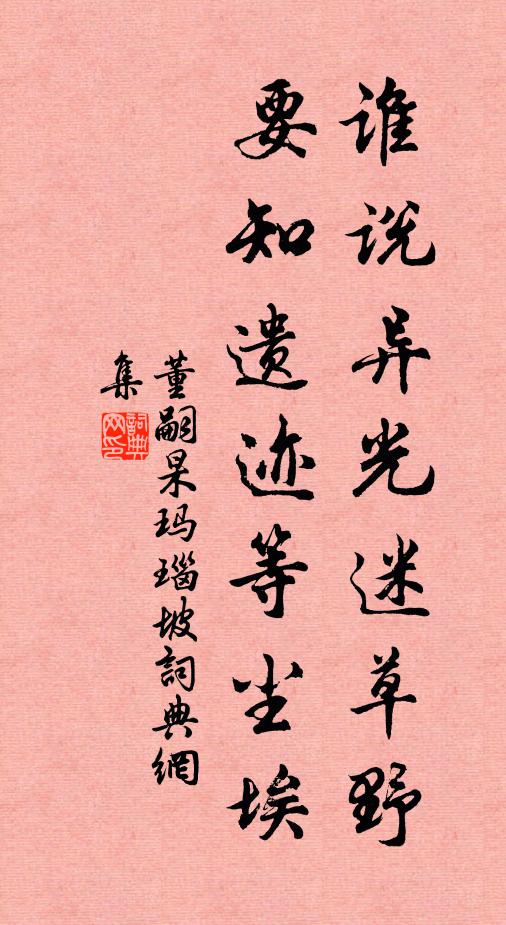 谁说异光迷草野
要知遗迹等尘埃
董嗣杲玛瑙坡詞典網
集
詞典
网印